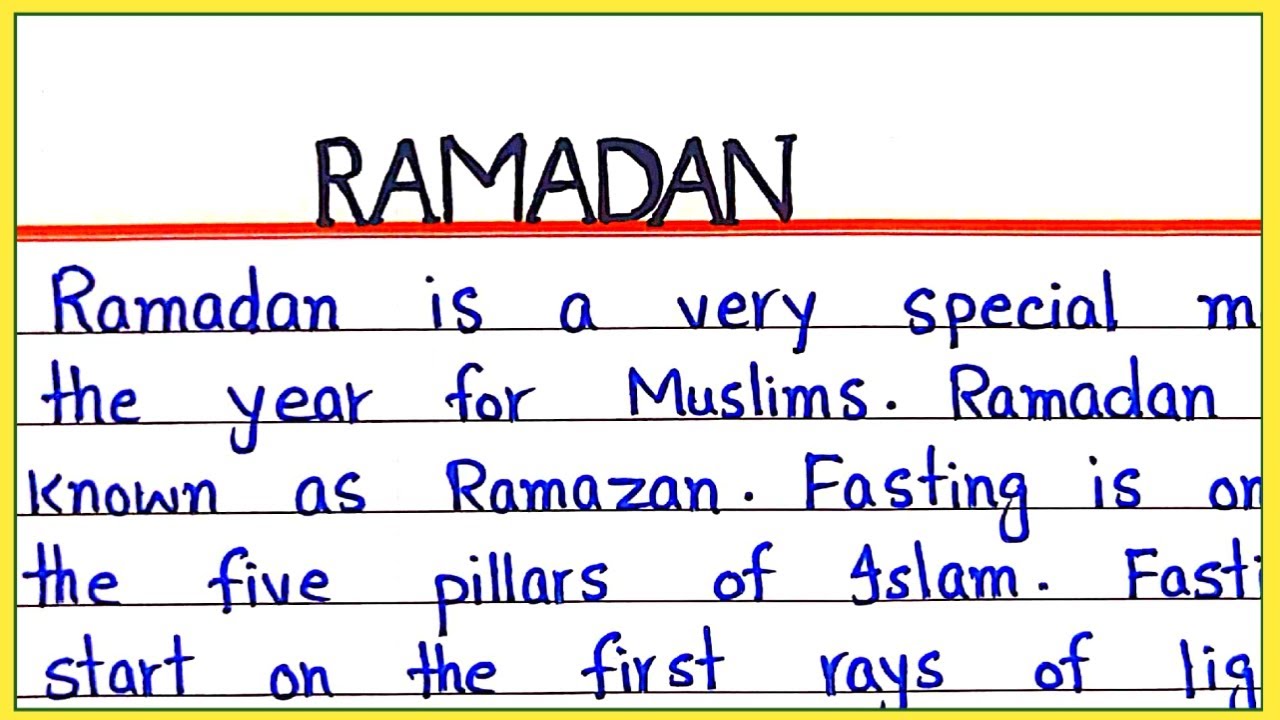 RAMADAN
Ramadan is a very special m
the year for Muslims. Ramadan
known as Ramazan. Fasting is on
the five pillars of Islam. Fasti
start on the first rays of lig